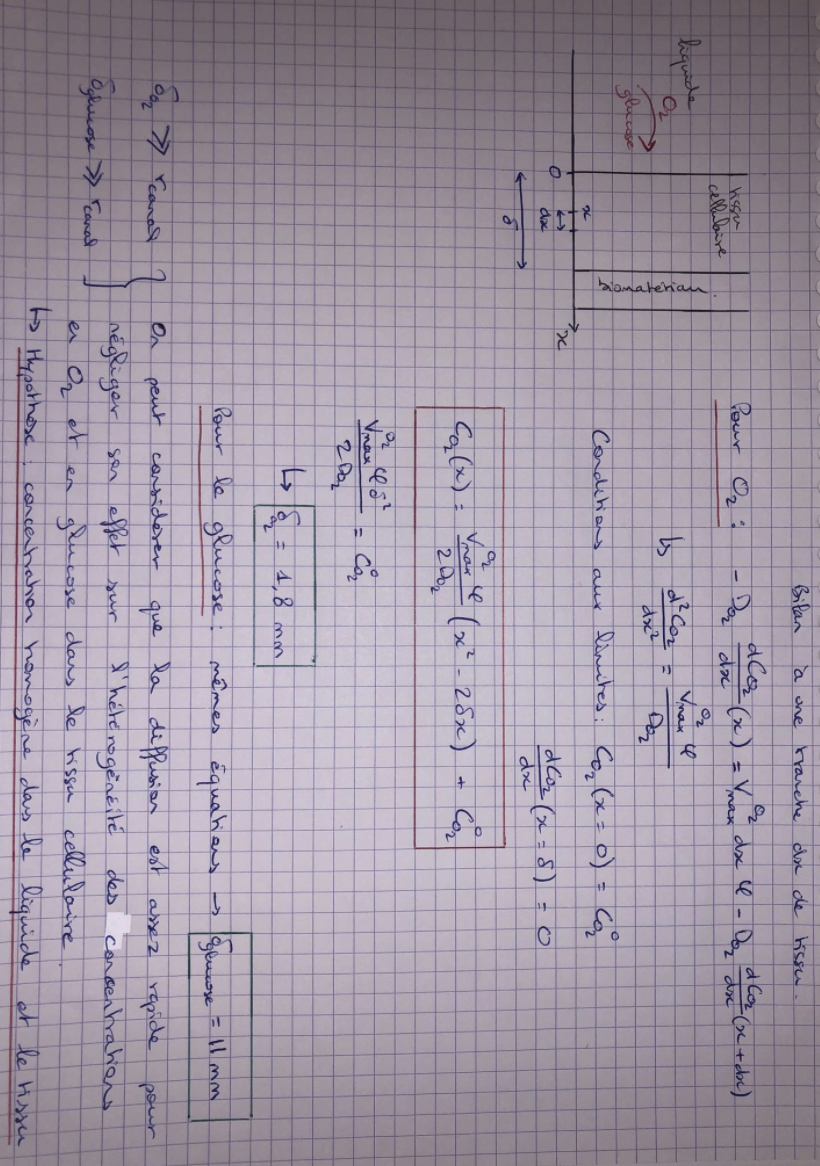 Bilan à une tranche dx de tissu.
liquide
O₂
glucose
tissu
cellulaire
biomatériau.
0
x
dx
δ
x
Pour O₂ : - D_O₂ dC_O₂/dx (x) = V_max^O₂ dx φ - D_O₂ dC_O₂/dx (x + dx)
↳ d²C_O₂/dx² = V_max^O₂ φ / D_O₂
Conditions aux limites : C_O₂ (x = 0) = C°_O₂
dC_O₂/dx (x = δ) = 0
C_O₂(x) = V_max^O₂ φ / 2D_O₂ (x² - 2δx) + C°_O₂
V_max^O₂ φ δ² / 2D_O₂ = C°_O₂
↳ δ_O₂ = 1,8 mm
Pour le glucose : mêmes équations → δ_glucose = 11 mm
δ_O₂ >> r_canal
δ_glucose >> r_canal
} On peut considérer que la diffusion est assez rapide pour
négliger son effet sur l'hétérogénéité des concentrations
en O₂ et en glucose dans le tissu cellulaire.
↳ Hypothèse : concentration homogène dans le liquide et le tissu